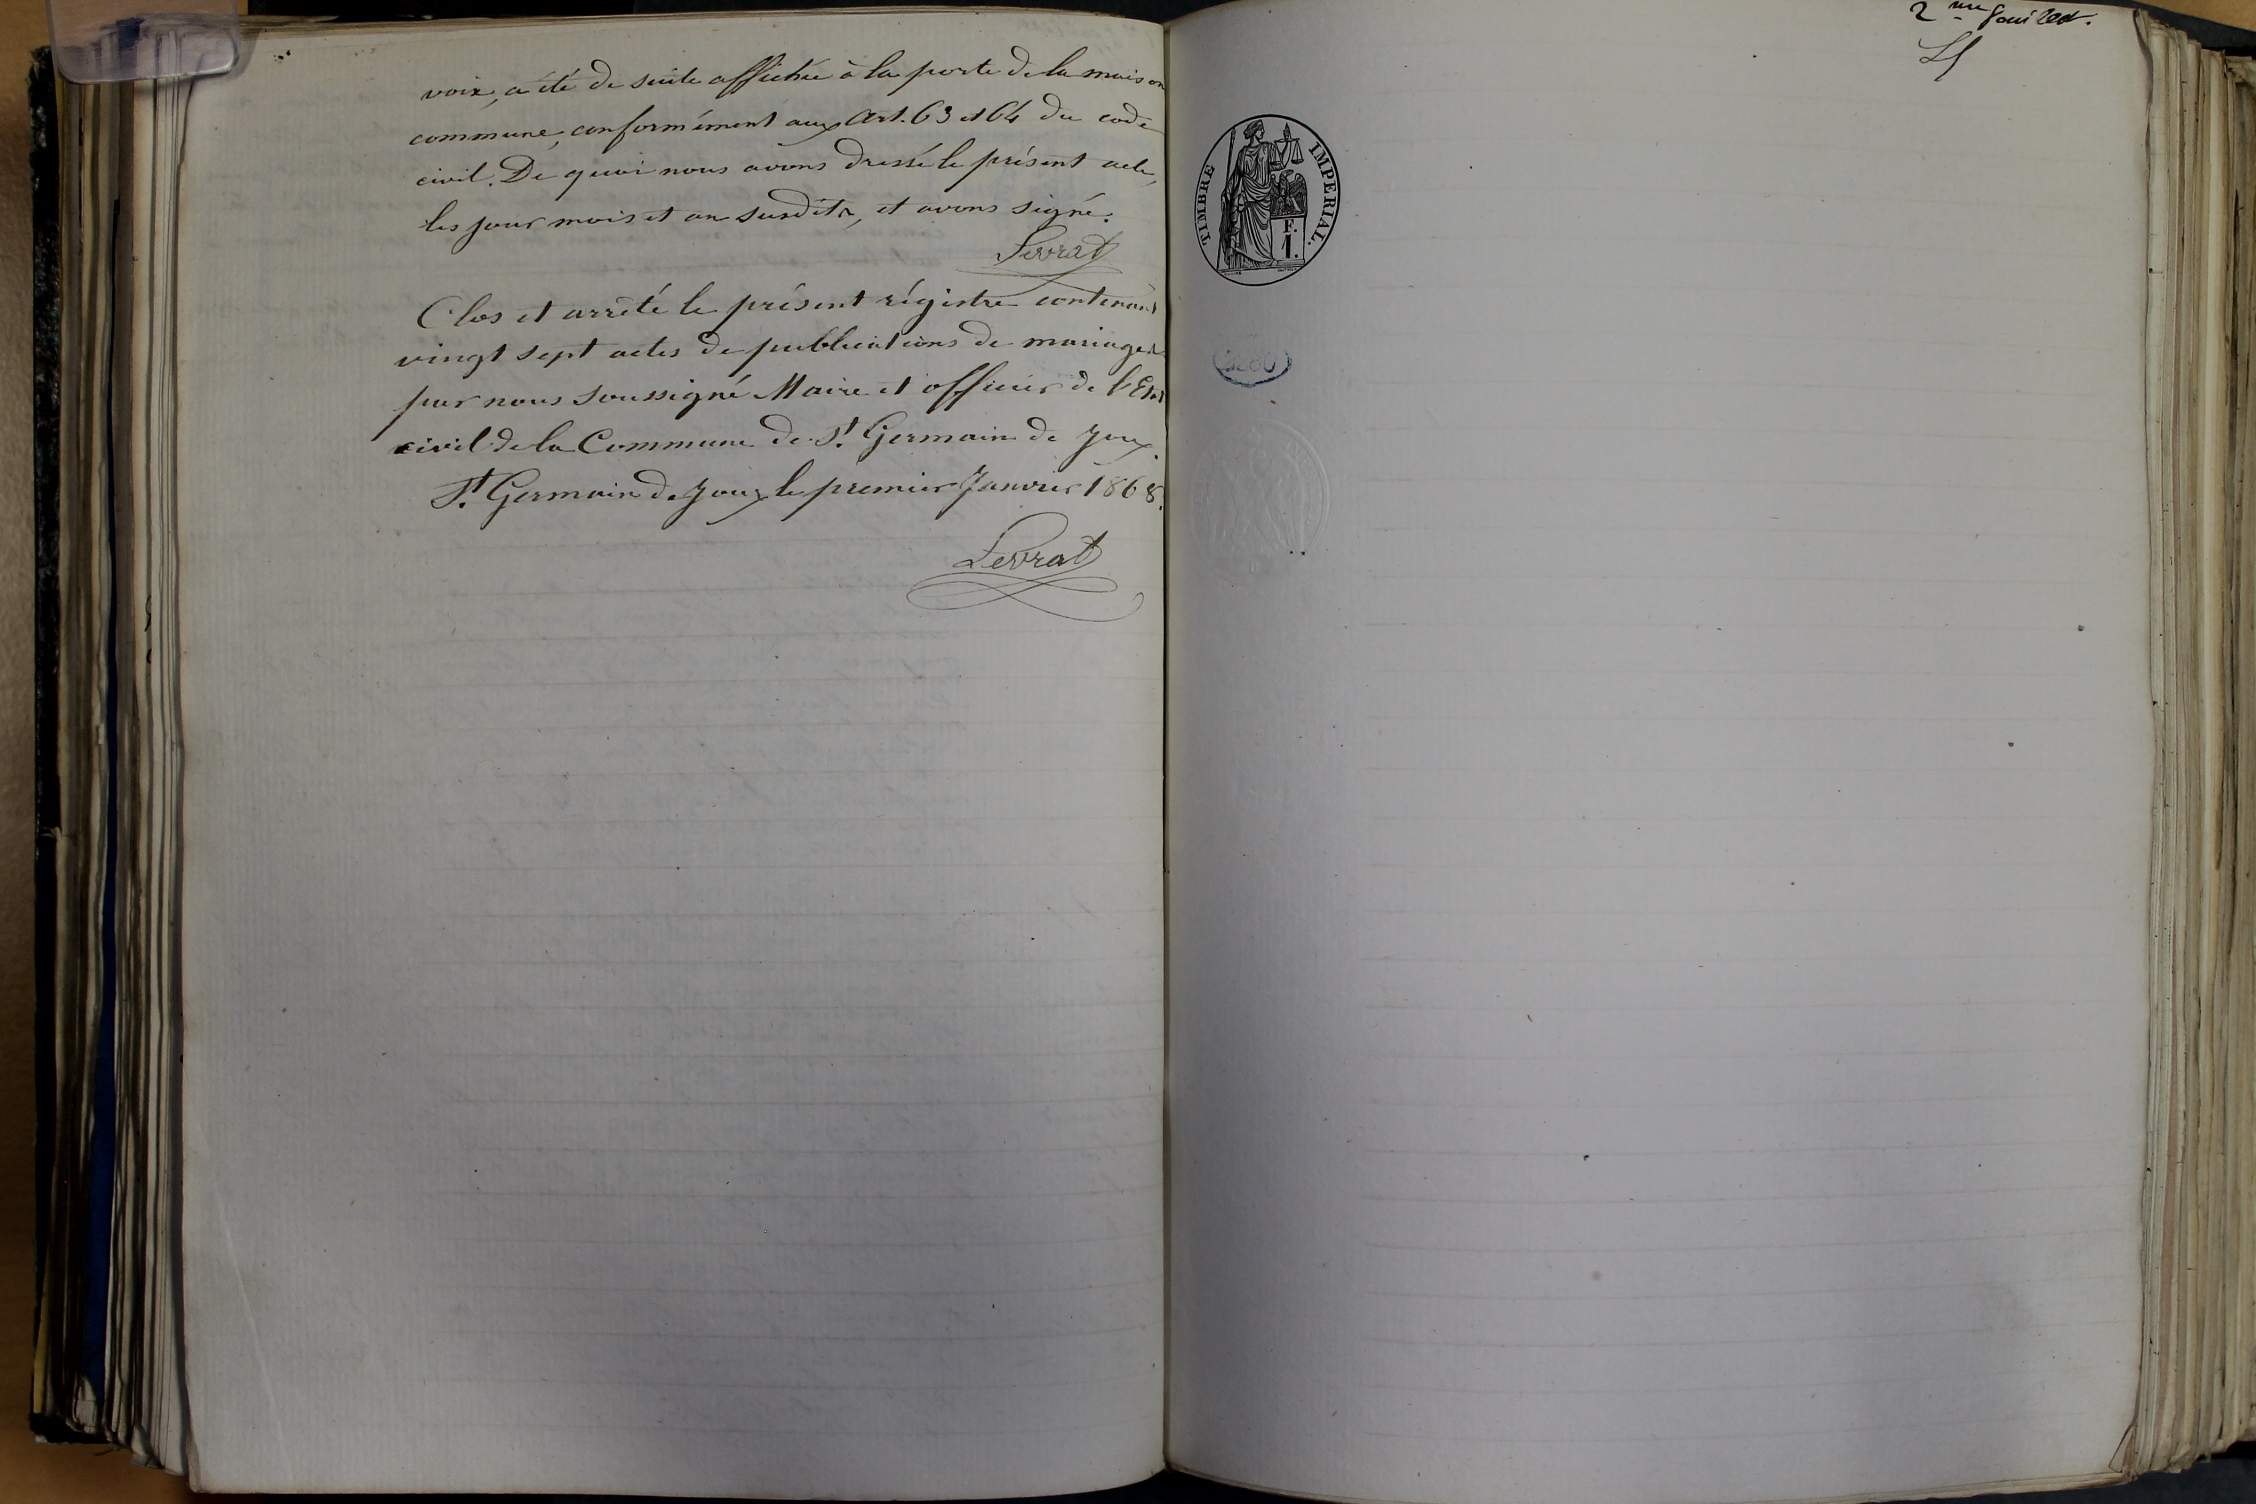 voix, a été de suite affichée à la porte de la maison
commune, conformément aux Art. 63 et 64 du code
civil. De quoi nous avons dressé le présent acte,
les jour mois et an susdits, et avons signé.
Levrat
Clos et arrêté le présent régistre contenant
vingt sept actes de publications de mariages
par nous soussigné Maire et officier de l'Etat
civil de la Commune de St Germain de Joux.
St Germain de Joux le premier Janvier 1868.
Levrat
2me feuillet.
TIMBRE IMPERIAL.
F.
1.